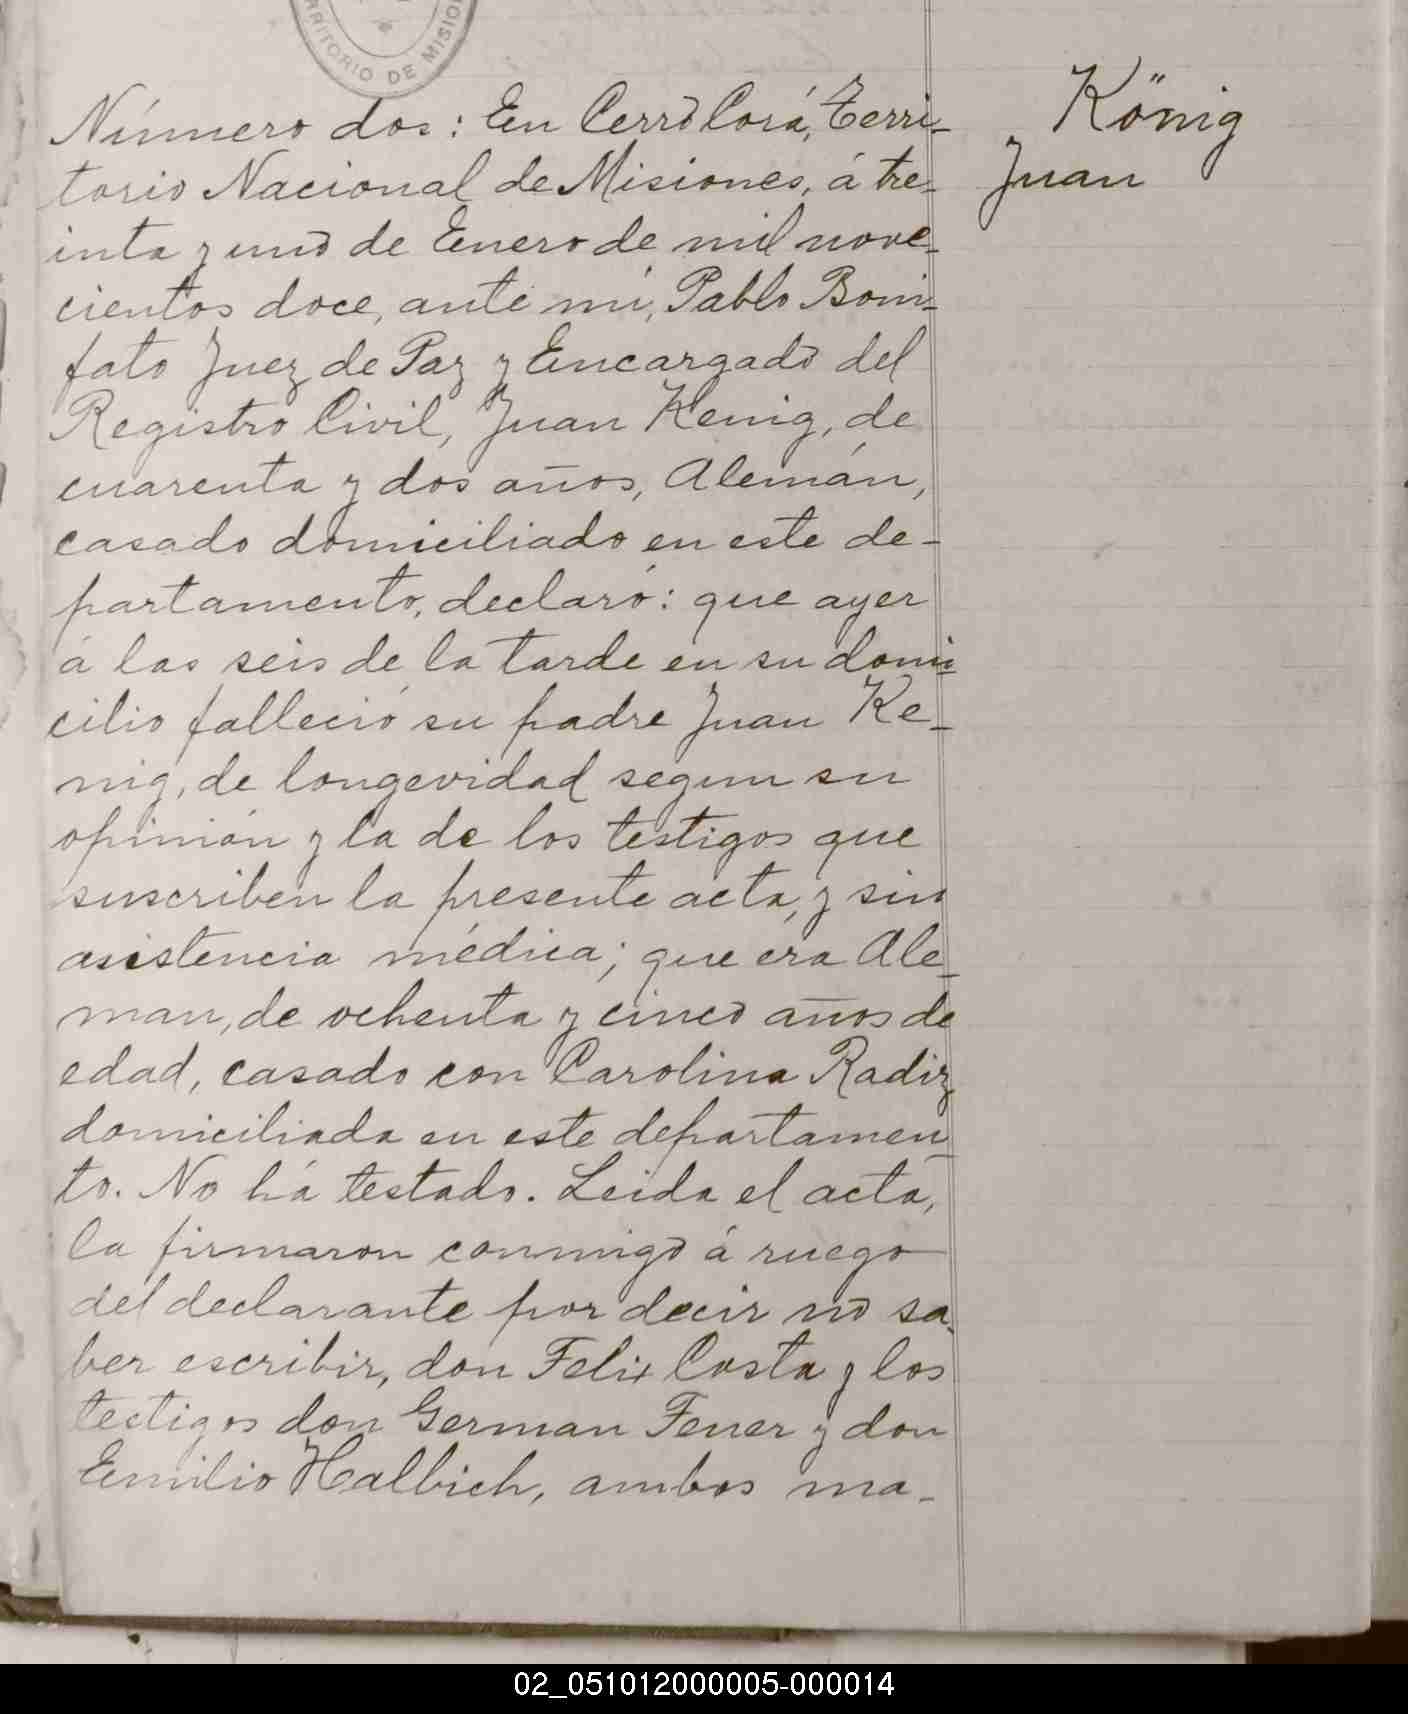 TERRITORIO DE MISIO
König
Juan
Número dos: En Cerro Corá, Terri-
torio Nacional de Misiones, á tre-
inta y uno de Enero de mil nove-
cientos doce, ante mí, Pablo Boni-
fato Juez de Paz y Encargado del
Registro Civil, Juan Kenig, de
cuarenta y dos años, Alemán,
casado domiciliado en este de-
partamento, declaró: que ayer
á las seis de la tarde en su domi-
cilio falleció su padre Juan Ke-
nig, de longevidad segun su
opinión y la de los testigos que
suscriben la presente acta, y sin
asistencia médica; que éra Ale-
man, de ochenta y cinco años de
edad, casado con Carolina Radiz,
domiciliada en este departamen-
to. No há testado. Leida el acta,
la firmaron conmigo á ruego
del declarante por decir no sa-
ber escribir, don Felix Costa y los
testigos don German Fener y don
Emilio Halbich, ambos ma-
02_051012000005-000014